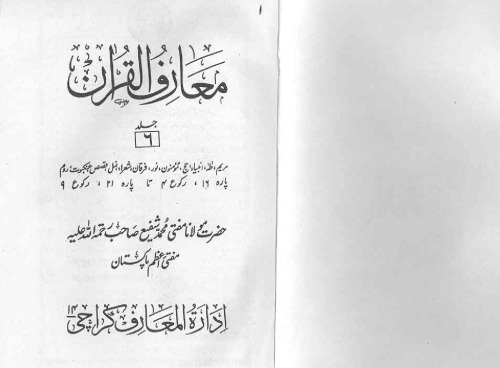 ۱
معارف القرآن
جلد
۶
مریم، طٰہٰ، انبیاء، حج، مؤمنون، نور، فرقان، شعراء، نمل، قصص، عنکبوت، روم
پارہ ۱۶، رکوع ۴ تا پارہ ۲۱، رکوع ۹
حضرت مولانا مفتی محمد شفیع صاحب رحمۃ اللہ علیہ
مفتی اعظم پاکستان
ادارۃ المعارف کراچی ۱۴